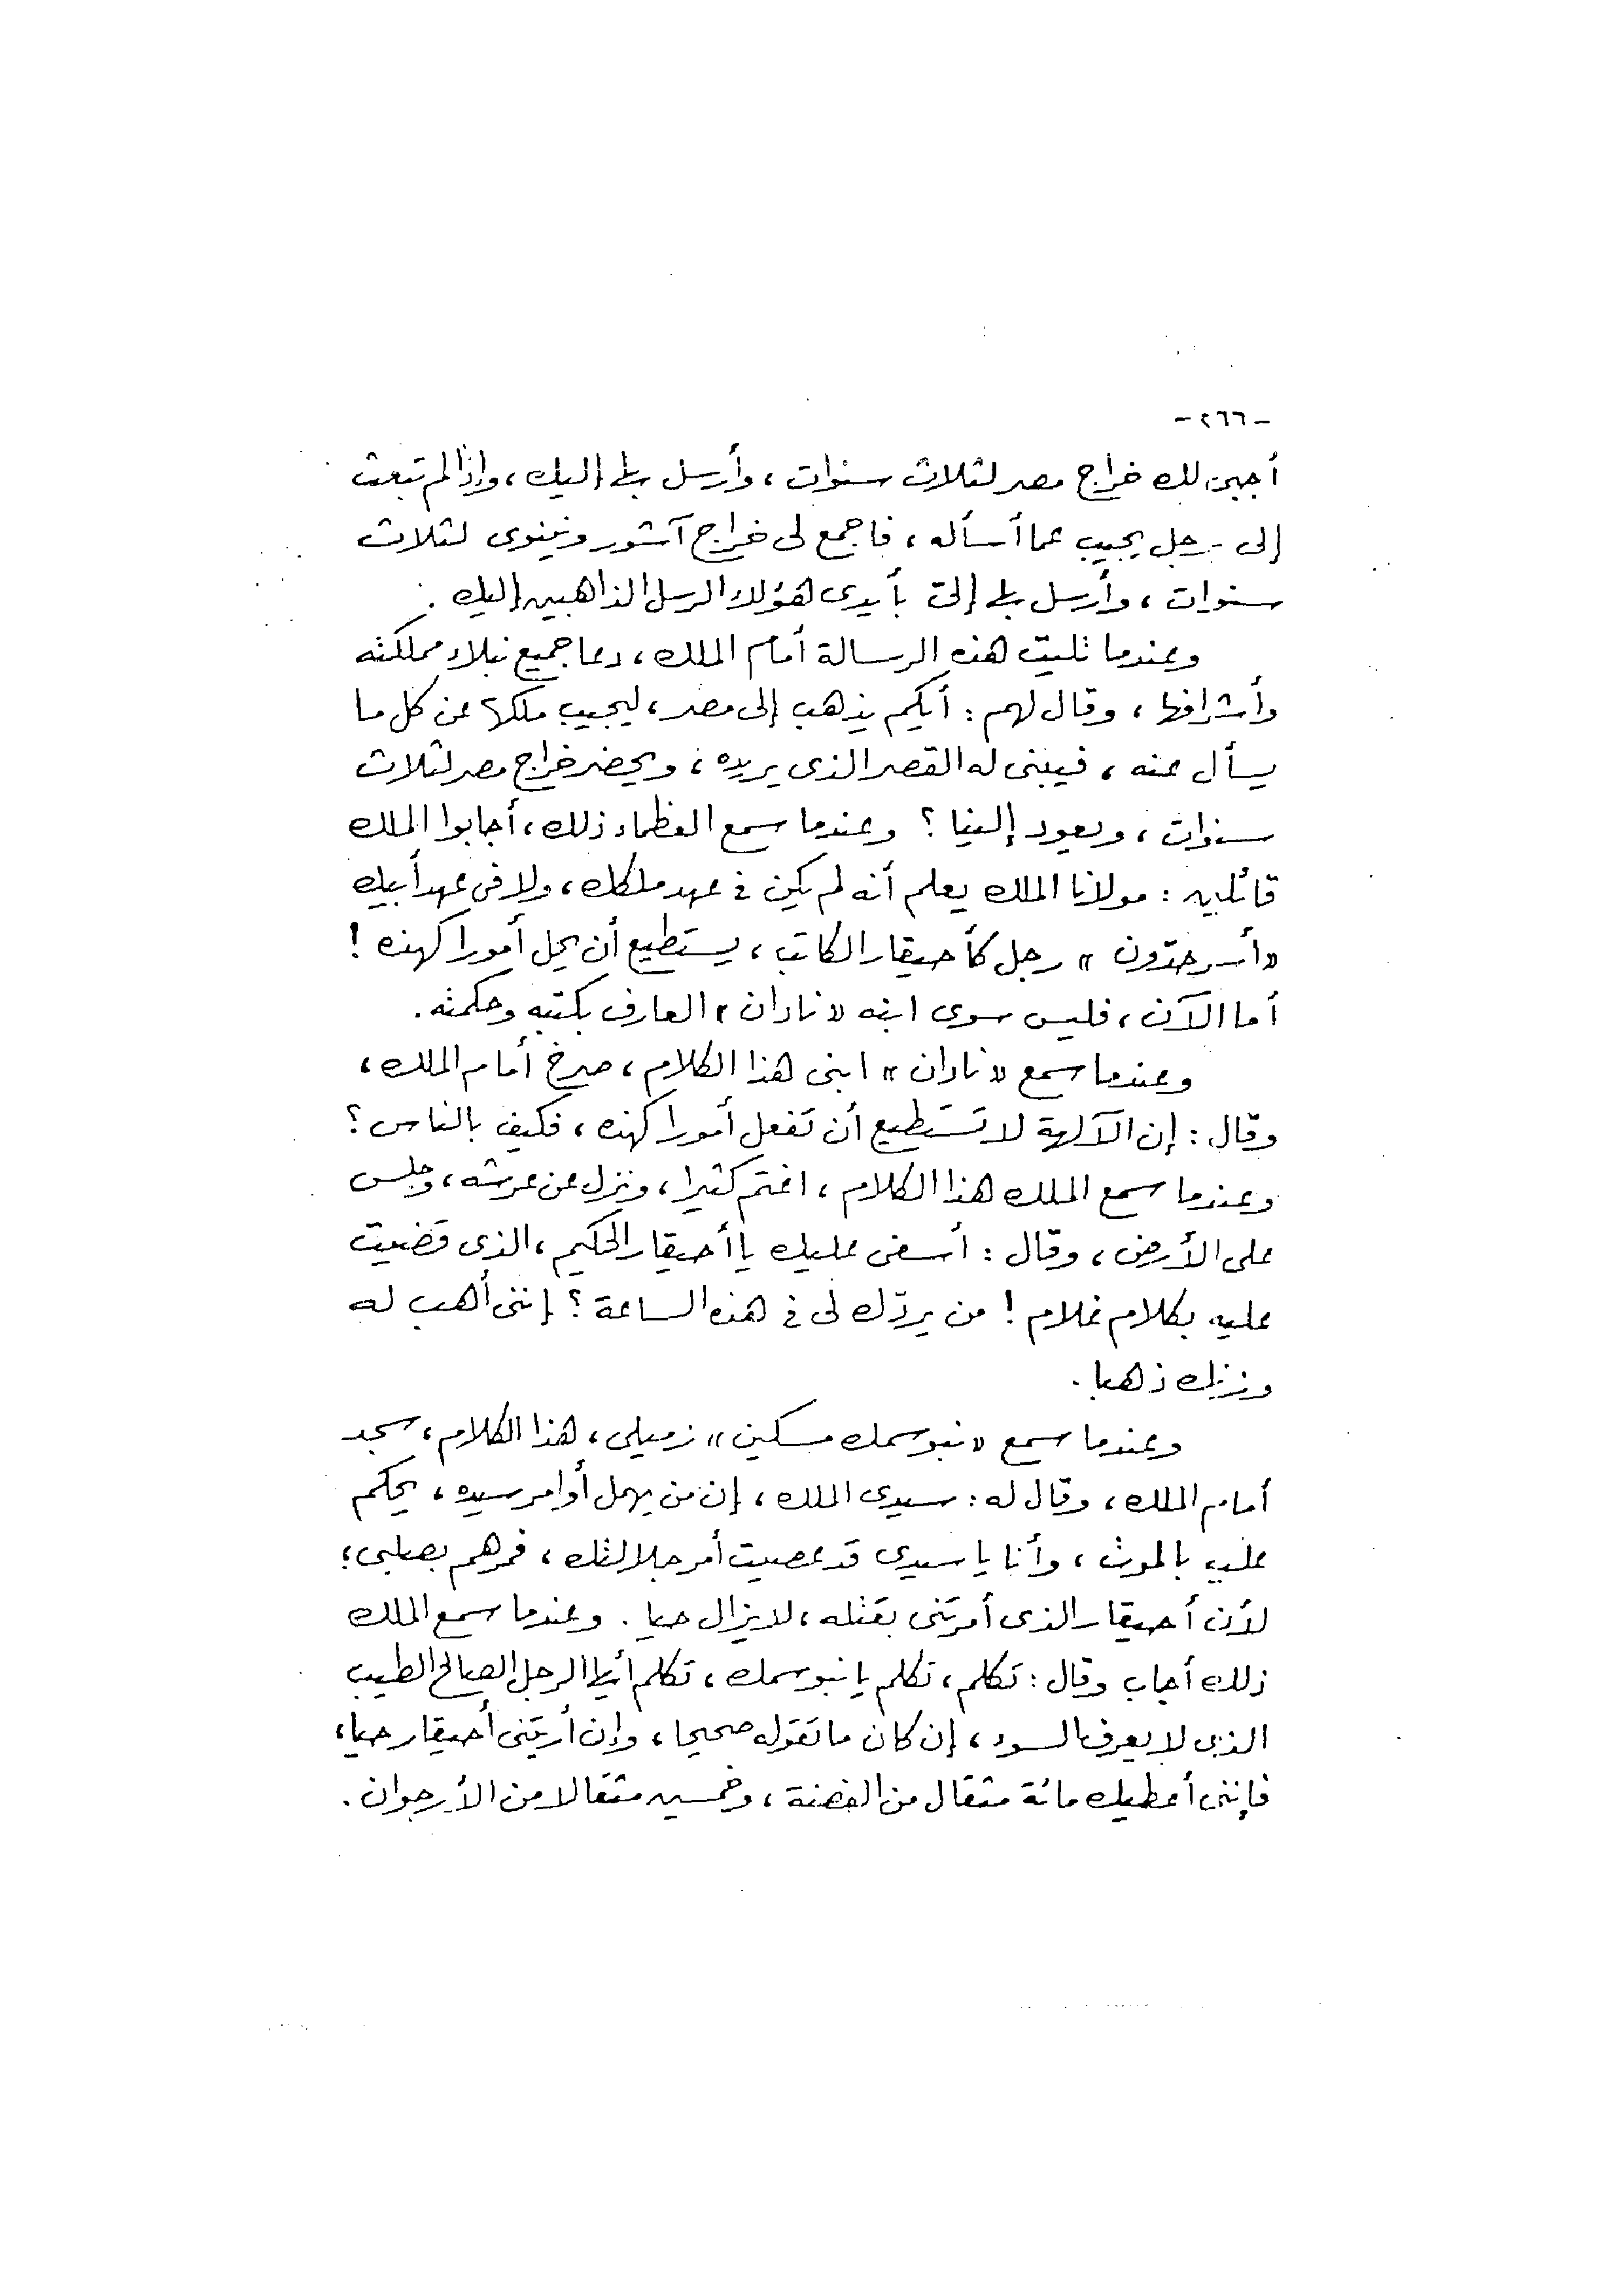 - ٢٦٦ -
أجبى لك خراج مصر لثلاث سنوات ، وأرسل بها إليك ، وإذا لم تبعث
إلى برجل يجيب عما أسأله ، فاجمع لى خراج آشور ونينوى لثلاث
سنوات ، وأرسل بها إلىّ بأيدى هؤلاء الرسل الذاهبين إليك .
وعندما تليت هذه الرسالة أمام الملك ، دعا جميع نبلاء مملكته
وأشرافها ، وقال لهم : أيكم يذهب إلى مصر ، ليجيب ملكها عن كل ما
يسأل عنه ، فيبنى له القصر الذى يريده ، ويحضر خراج مصر لثلاث
سنوات ، ويعود إلينا ؟ وعندما سمع العظماء ذلك ، أجابوا الملك
قائلين : مولانا الملك يعلم أنه لم يكن فى عهد ملكك ، ولا فى عهد أبيك
« أسرحدّون » رجل كأحيقار الكاتب ، يستطيع أن يحل أمورا كهذه !
أما الآن ، فليس سوى ابنه « نادان » العارف بكتبه وحكمته .
وعندما سمع « نادان » ابنى هذا الكلام ، صرخ أمام الملك ،
وقال : إن الآلهة لا تستطيع أن تفعل أمورا كهذه ، فكيف بالناس ؟
وعندما سمع الملك هذا الكلام ، اغتم كثيرا ، ونزل عن عرشه ، وجلس
على الأرض ، وقال : أسفى عليك يا أحيقار الحكيم ، الذى قضيت
عليه بكلام غلام ! من يردّك لى فى هذه الساعة ؟ إننى أهب له
وزنك ذهبا .
وعندما سمع « نبوسمك مسكين » زميلى ، هذا الكلام ، سجد
أمام الملك ، وقال له : سيدى الملك ، إن من يهمل أوامر سيده ، يحكم
عليه بالموت ، وأنا يا سيدى قد عصيت أمر جلالتك ، فمرهم بصلبى ؛
لأن أحيقار الذى أمرتنى بقتله ، لا يزال حيا . وعندما سمع الملك
ذلك أجاب وقال : تكلم ، تكلم يا نبوسمك ، تكلم أيها الرجل الصالح الطيب
الذى لا يعرف السوء ، إن كان ما تقوله صحيحا ، وإن أريتنى أحيقار حيا ،
فإننى أعطيك مائة مثقال من الفضة ، وخمسين مثقالا من الأرجوان .